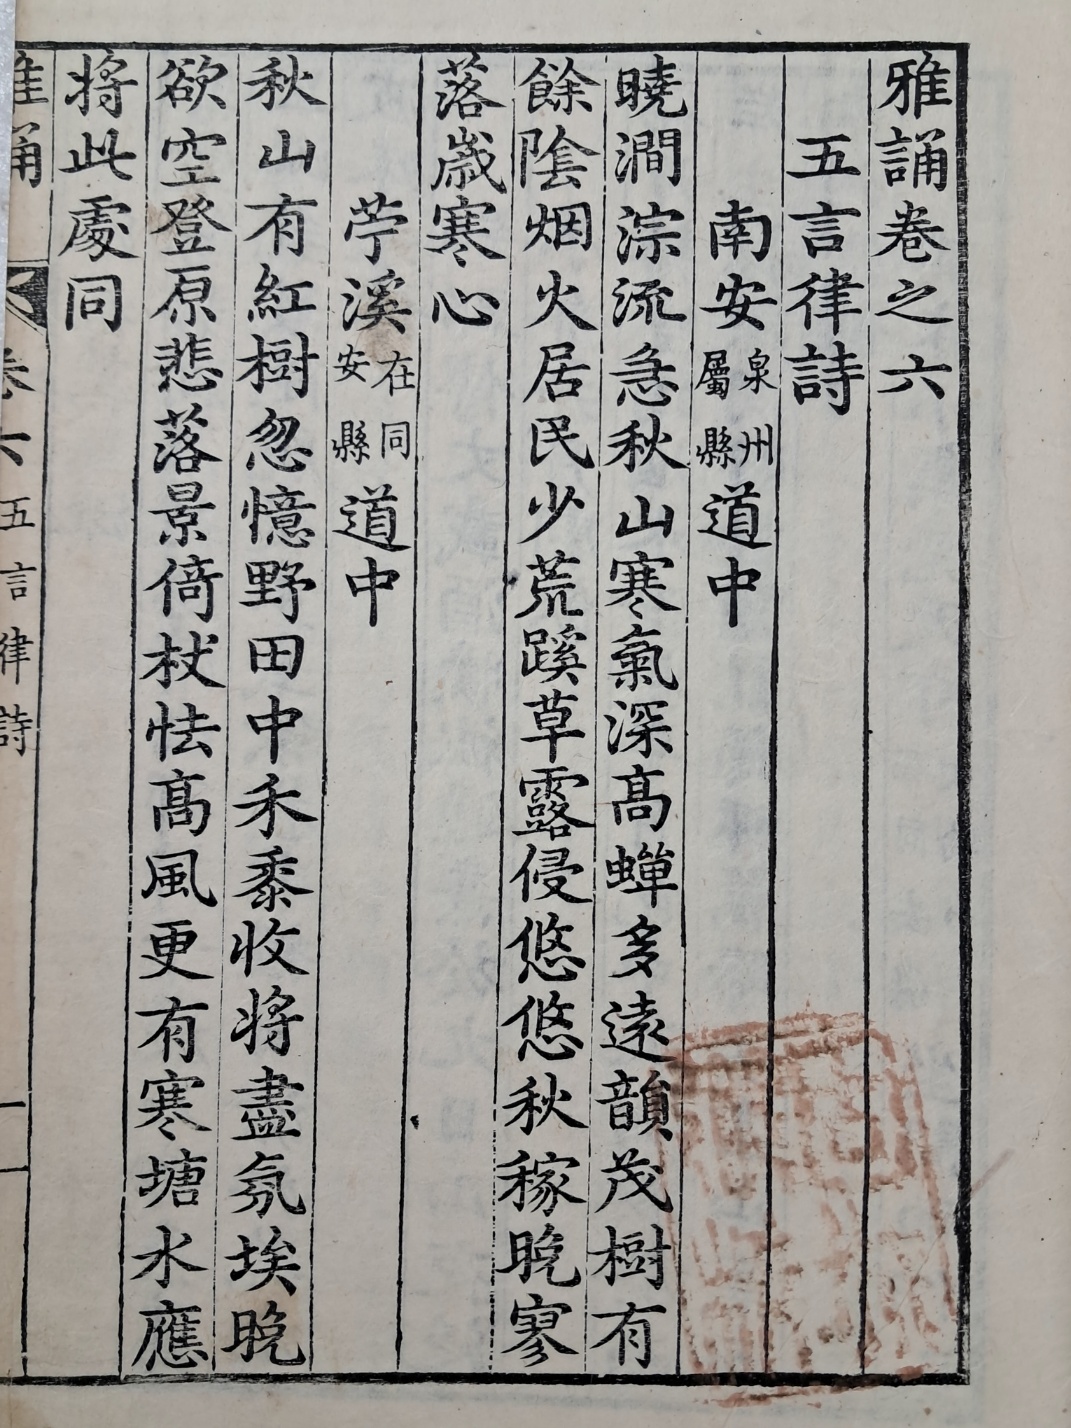 雅誦卷之六
五言律詩
南安泉州屬縣道中
曉澗淙流急秋山寒氣深高蟬多遠韻茂樹有
餘陰烟火居民少荒蹊草露侵悠悠秋稼晚寥
落歲寒心
苧溪在同安縣道中
秋山有紅樹忽憶野田中禾黍收將盡氛埃晚
欲空登原悲落景倚杖怯高風更有寒塘水應
將此處同
雅誦
卷六
五言律詩
一